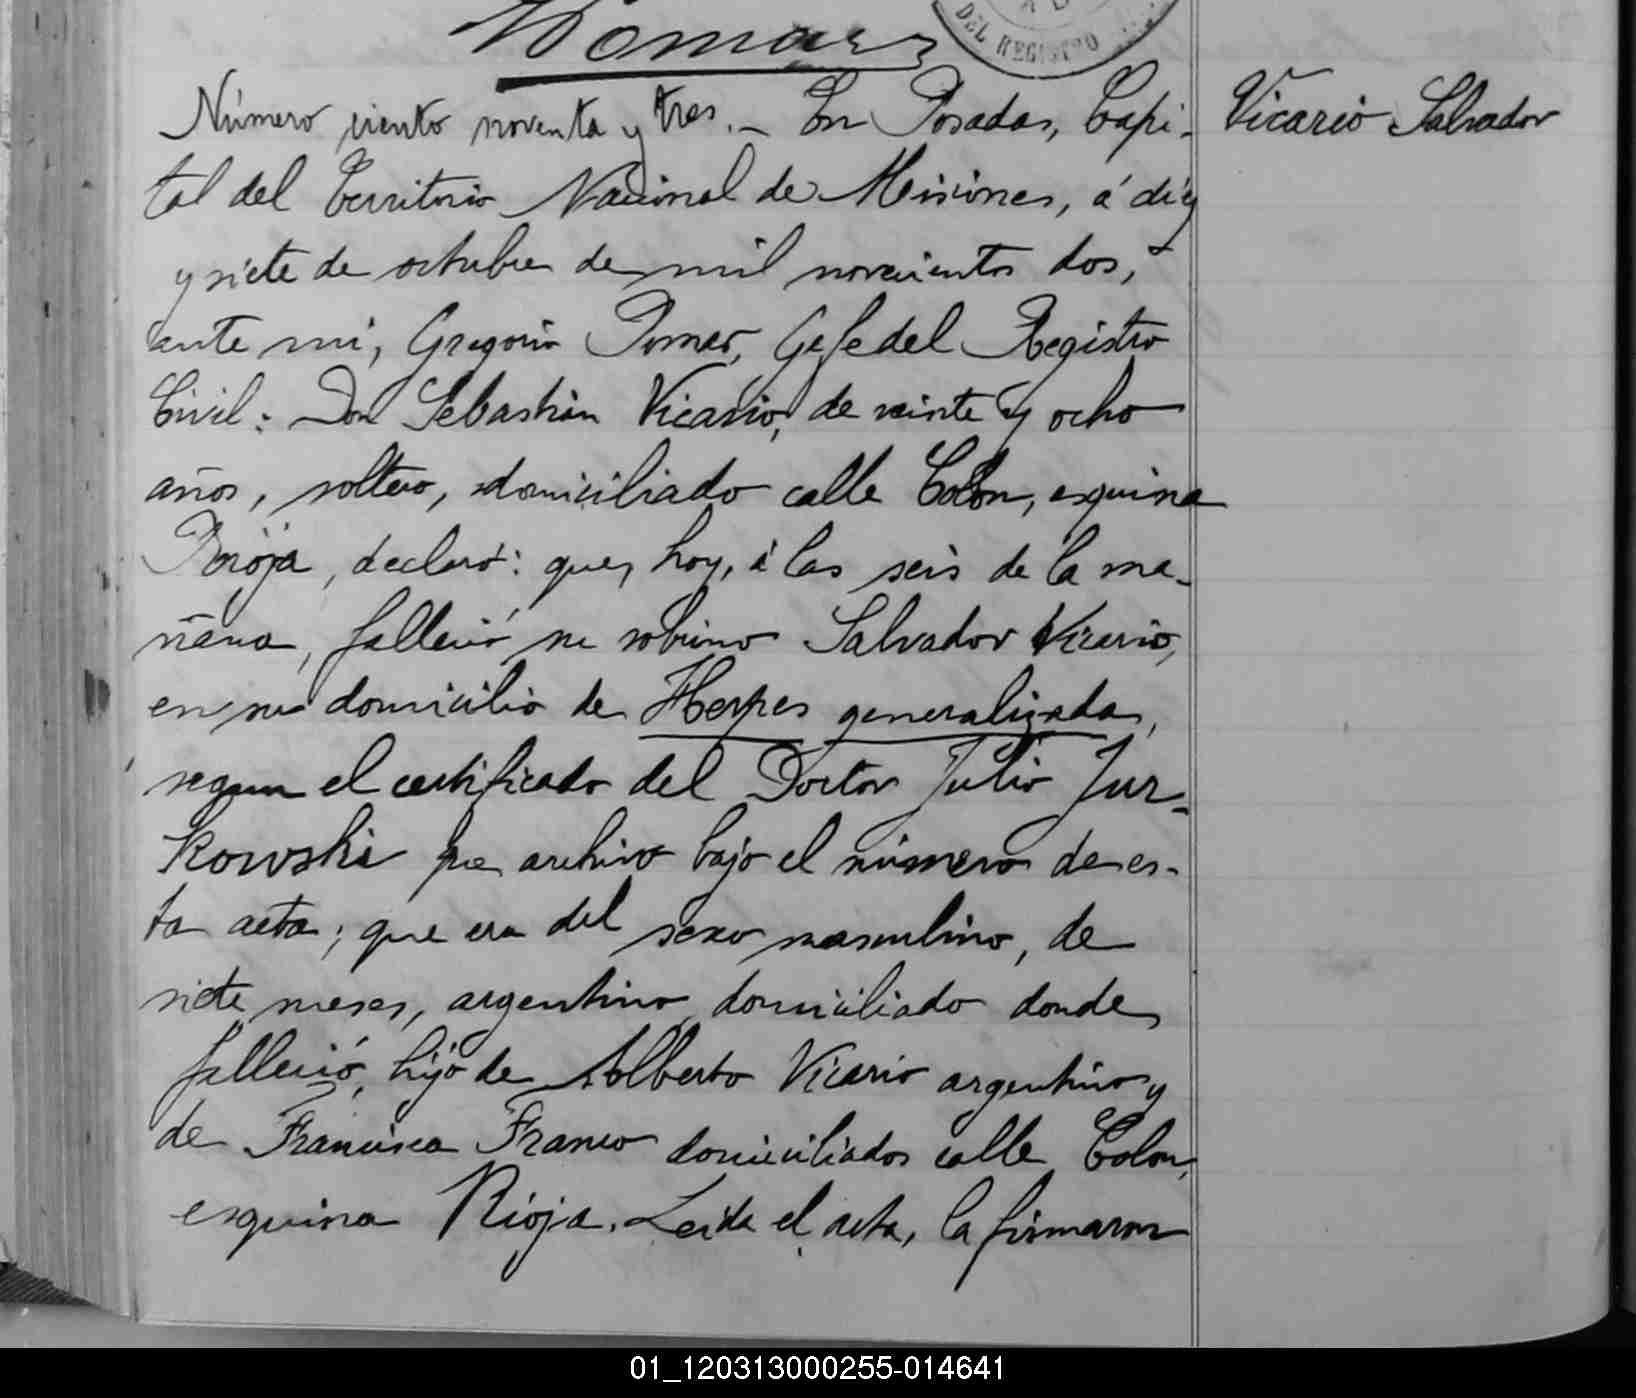 DEL REGISTRO
Número ciento noventa y tres.- En Posadas, Capi-
Vicario Salvador
tal del Territorio Nacional de Misiones, á diez
y siete de octubre de mil novecientos dos,
ante mi, Gregorio Pomar, Gefe del Registro
Civil: Don Sebastián Vicario, de veinte y ocho
años, soltero, domiciliado calle Colon, esquina
Rioja, declaró: que, hoy, á las seis de la ma-
ñana, falleció su sobrino Salvador Vicario,
en su domicilio de Herpes generalizada,
segun el certificado del Doctor Julio Jur-
kowski que archivo bajo el número de es-
ta acta; que era del sexo masculino, de
siete meses, argentino, domiciliado donde
falleció, hijo de Alberto Vicario argentino y
de Francisca Franco domiciliados calle Colon,
esquina Rioja. Leida el acta, la firmaron
01_120313000255-014641